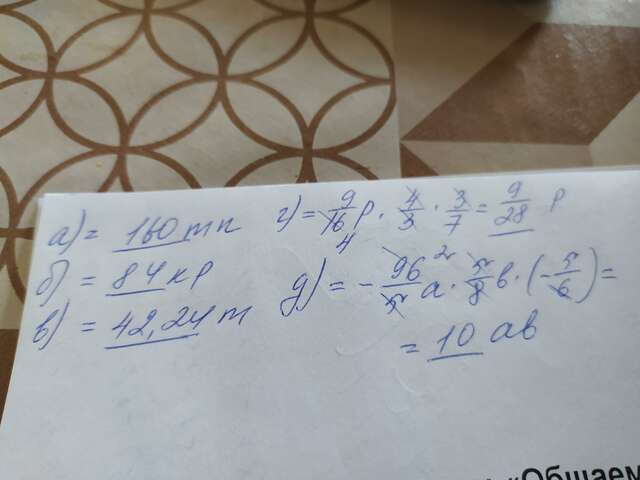 а) = 160 mn
б) = 84 кр
в) = 42,24 m
г) = 9/16 p · 4/3 · 3/7 = 9/28 p
4
д) = - 96/5 a · 5/8 в · (- 5/6) =
2
= 10 ав
«Общаем